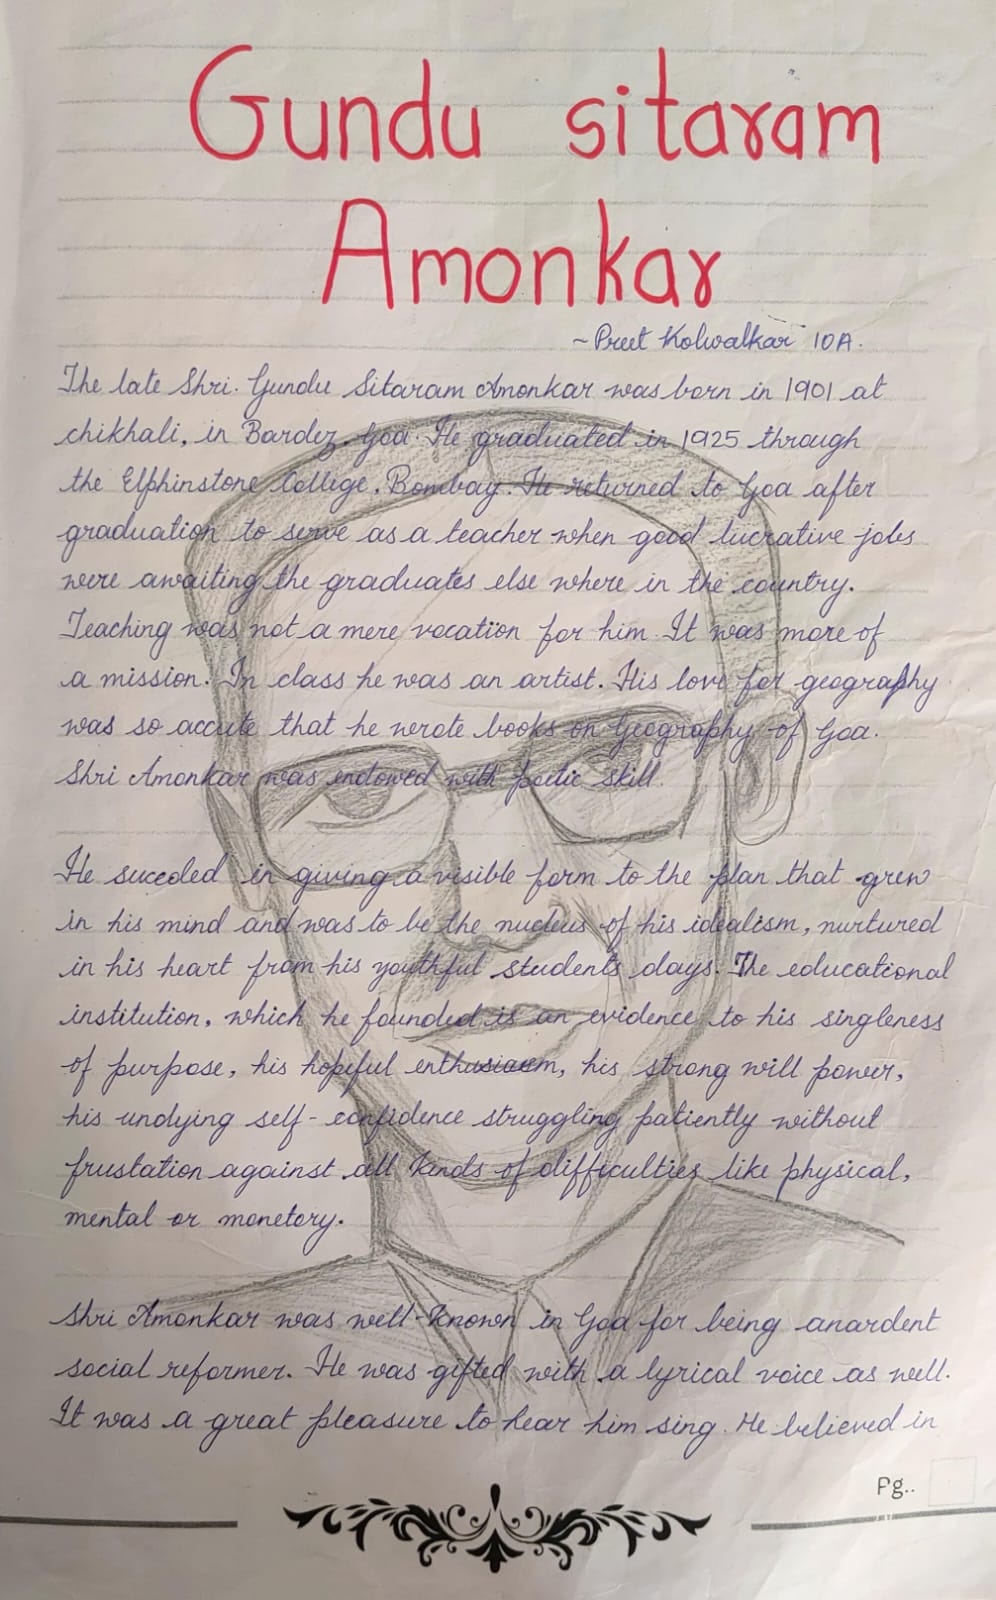 Gundu sitaram
Amonkar
~Preet Kolwalkar 10A.
The late Shri. Gundu Sitaram Amonkar was born in 1901 at
chikhali, in Bardez, Goa. He graduated in 1925 through
the Elphinstone College, Bombay. He returned to Goa after
graduation to serve as a teacher when good lucrative jobs
were awaiting the graduates else where in the country.
Teaching was not a mere vocation for him. It was more of
a mission. In class he was an artist. His love for geography
was so accute that he wrote books on Geography of Goa.
Shri Amonkar was endowed with poetic skill.
He succeded in giving a visible form to the plan that grew
in his mind and was to be the nucleus of his idealism, nurtured
in his heart from his youthful students days. The educational
institution, which he founded is an evidence to his singleness
of purpose, his hopeful enthusiasm, his strong will power,
his undying self-confidence struggling patiently without
frustation against all kinds of difficulties like physical,
mental or monetory.
Shri Amonkar was well-known in Goa for being anardent
social reformer. He was gifted with a lyrical voice as well.
It was a great pleasure to hear him sing. He believed in
Pg..